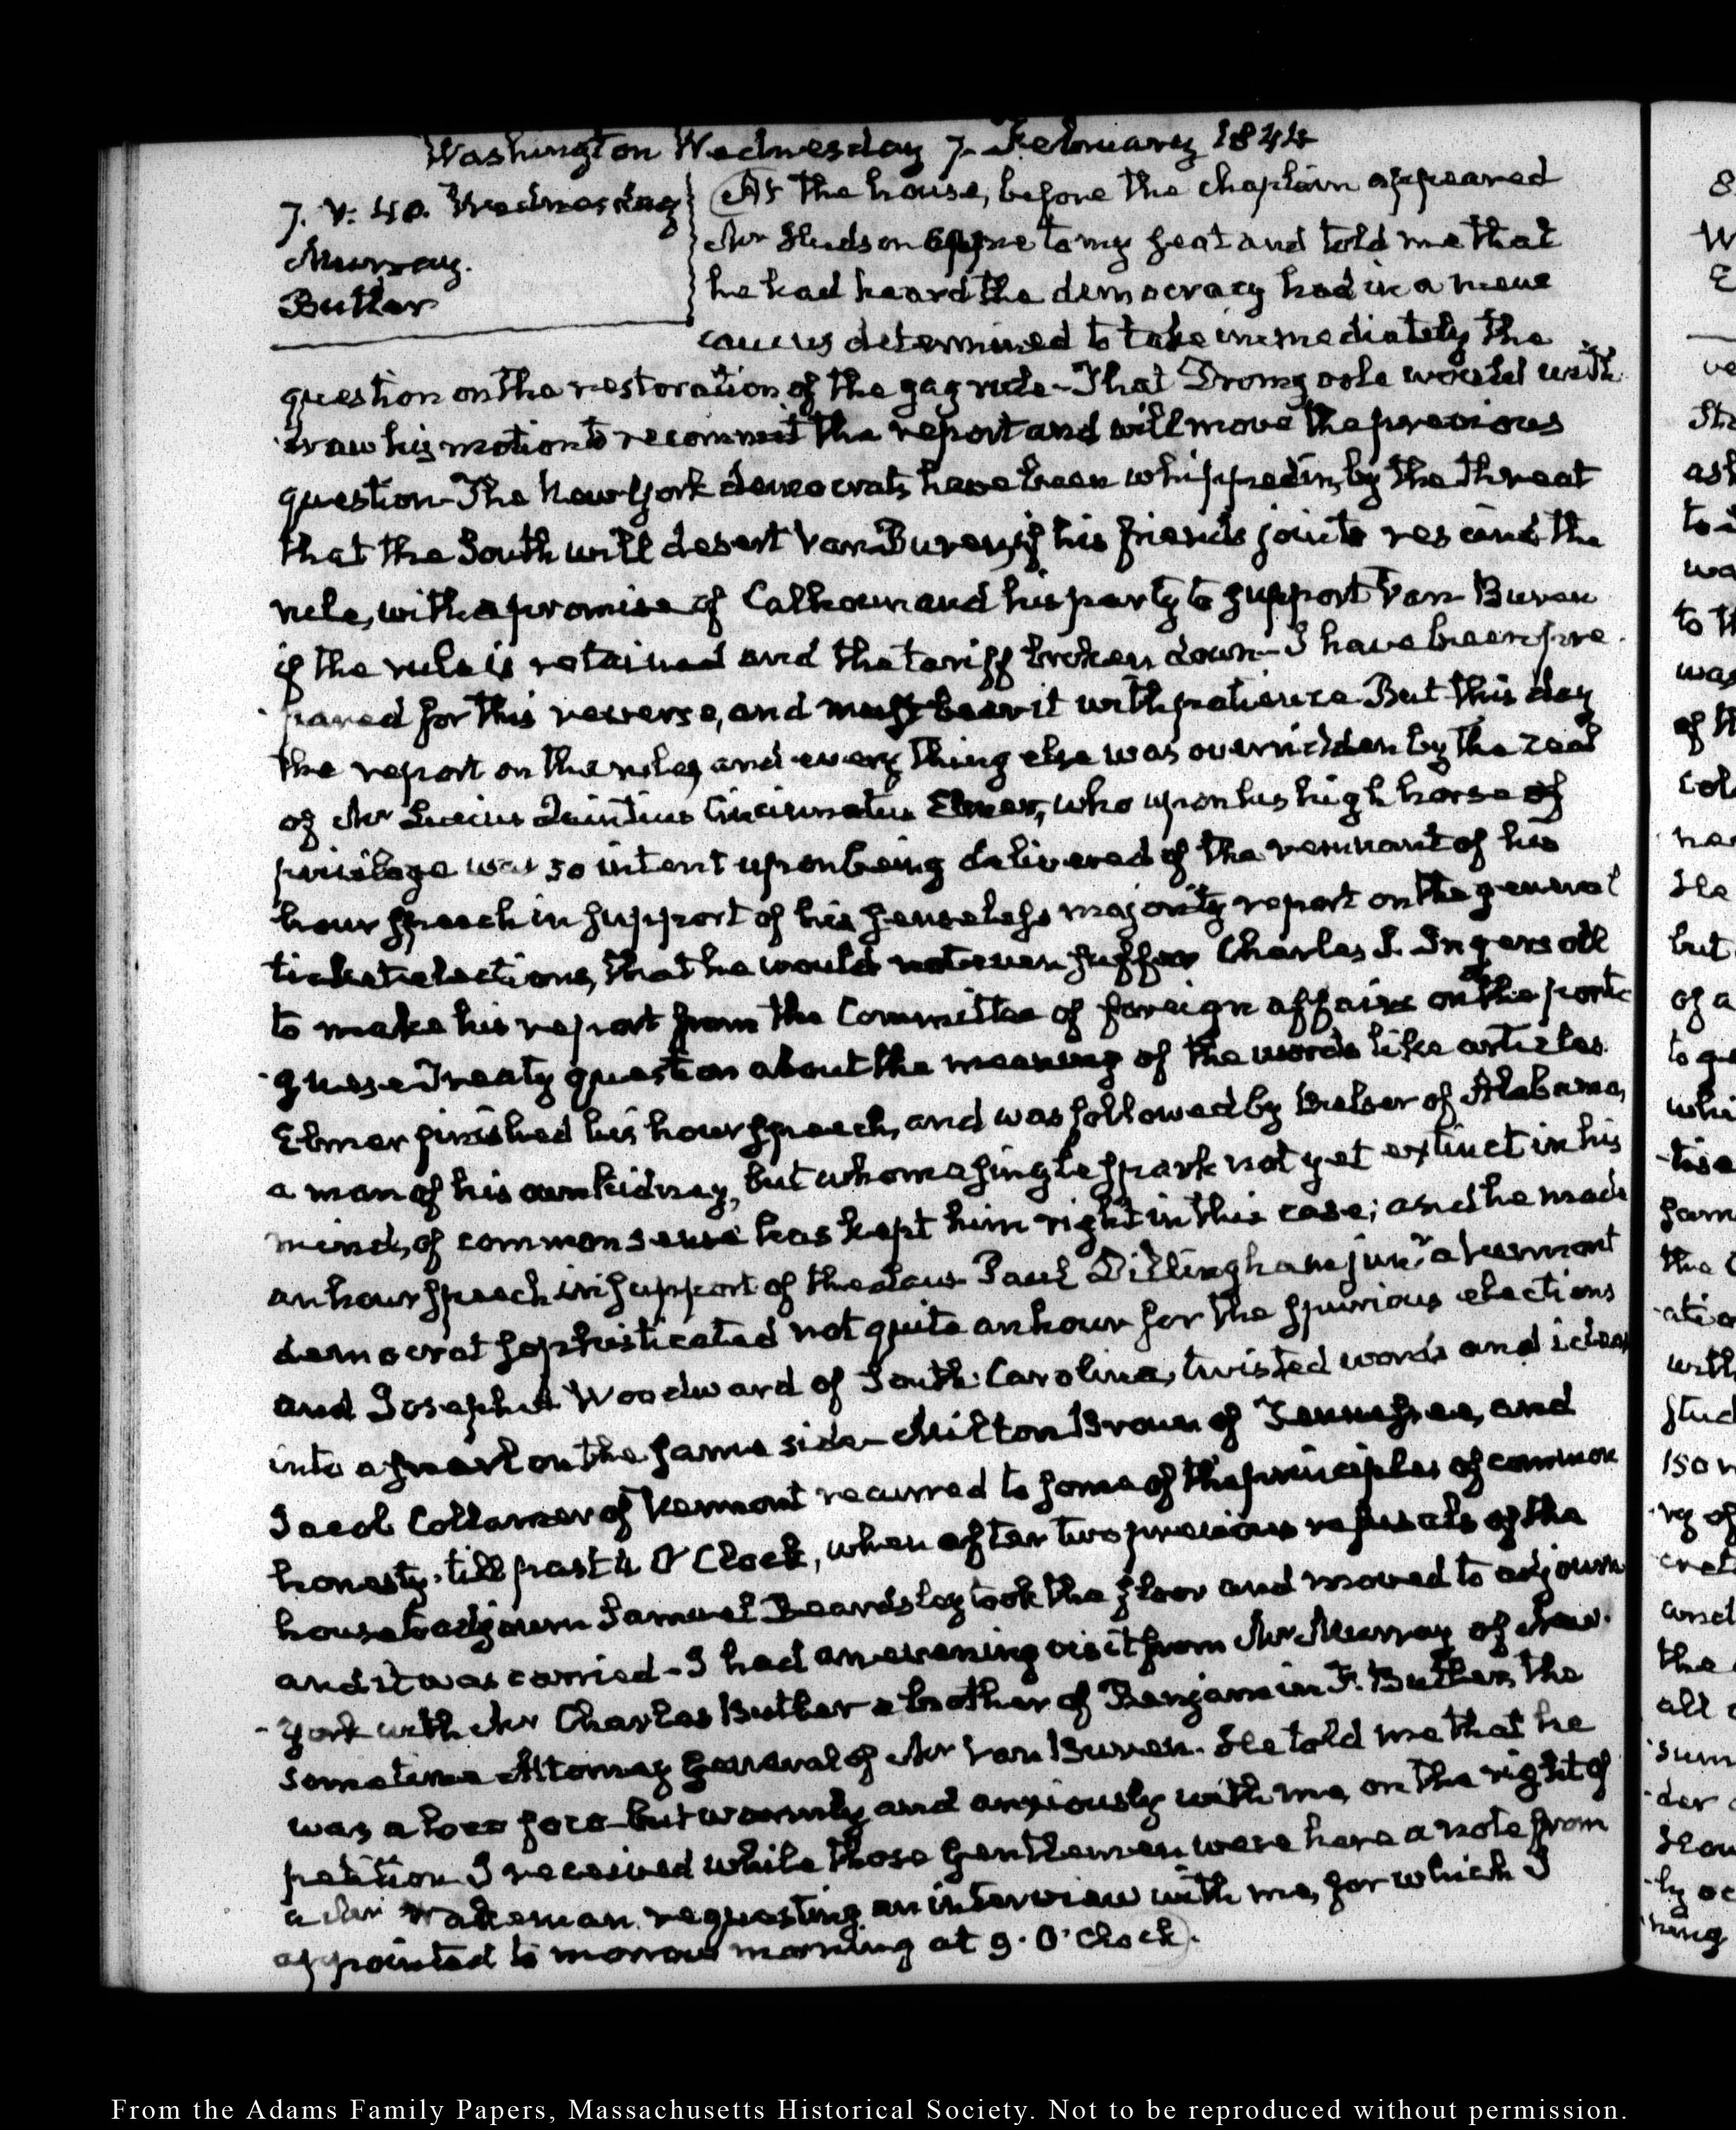 Washington Wednesday 7. February 1844
7. V: 40. Wednesday
Murray.
Butler
At the house, before the chaplain appeared
Mr Hudson came to my seat and told me that
he had heard the democracy had in a meve
caucus determined to take immediately the
question on the restoration of the gag rule - That Dromgoole would with
draw his motion to recommit the report and will move the previous
question - The New York democrats have been whipped in, by the threat
that the South will desert Van Buren, if his friends join to rescind the
rule, with a promise of Calhoun and his party to support Van Buren
if the rule is retained and the tariff broken down - I have been pre
-pared for this reverse, and must bear it with patience. But this day
the report on the rules, and every thing else was overridden by the zeal
of Mr Lucius Quintius Cincinnatus Elmer, who upon his high horse of
privilege was so intent upon being delivered of the remnant of his
hour speech in support of his senseless majority report on the general
ticket elections, that he would not even suffer Charles J. Ingersoll
to make his report from the Committee of foreign affairs on the portu
-guese Treaty question about the meaning of the words like articles.
Elmer finished his hour speech, and was followed by Belser of Alabama,
a man of his own kidney, but whom a single spark not yet extinct in his
mind, of common sense has kept him right in this case; and he made
an hour speech in support of the law - Paul Dillingham junr. a Vermont
democrat sophisticated not quite an hour for the spurious elections
and Joseph A Woodward of South-Carolina, twisted words and ideas
into a snarl on the same side - Milton Brown of Tennessee, and
Jacob Collamer of Vermont recurred to some of the principles of common
honesty. till past 4 O'Clock, when after two previous refusals of the
house to adjourn Samuel Beardsley took the floor and moved to adjourn
and it was carried - I had an evening visit from Mr Murray of New-
-York with Mr Charles Butler a brother of Benjamin F. Butler, the
sometime Attorney General of Mr Van Buren. He told me that he
was a loco foco but warmly and anxiously with me, on the right of
petition. I received while those Gentlemen were here a note from
a Mr Wakeman requesting an interview with me, for which I
appointed to morrow morning at 9. O'Clock.
From the Adams Family Papers, Massachusetts Historical Society. Not to be reproduced without permission.